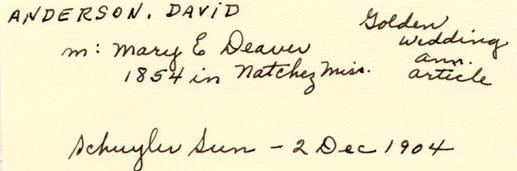 ANDERSON, DAVID
Golden
Wedding
ann.
article
m: Mary E Deaver
1854 in Natchez Miss.
Schuyler Sun - 2 Dec 1904